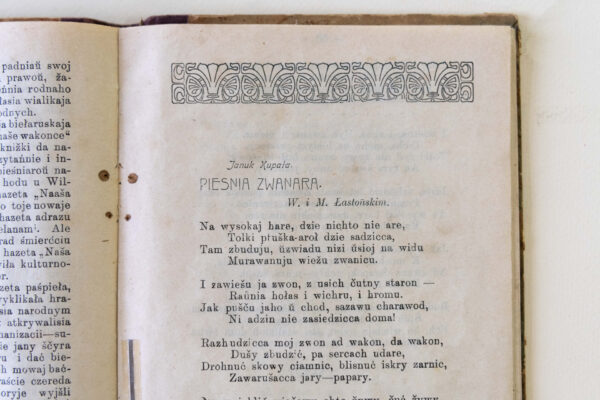 padniaŭ swoj
prawoŭ, ža-
rodnaho
wialikaja
biełaruskaja
naše wakonce"
knižki da na-
i in-
na-
hodu u Wil-
hazeta „Naaša
to toje nowaje
hazeta adrazu
Ale
śmierćciu
hazeta „Naša
kulturno-
paśpieła,
wyklikała hra-
narodnym
atkrywalisia
su-
jany ščyra
i dać bie-
mowaj bać-
čereda
wyjšli
Januk Kupała.
PIEŚNIA ZWANARA.
W. i M. Łastoŭskim.
Na wysokaj hare, dzie nichto nie are,
Tolki ptuška-aroł dzie sadzicca,
Tam zbuduju, ŭzwiadu nizi ŭsioj na widu
Murawanuju wiežu zwanicu.
I zawiešu ja zwon, z usich čutny staron —
Raŭnia hołas i wichru, i hromu.
Jak pušču jaho ŭ chod, sazawu charawod,
Ni adzin nie zasiedzicca doma!
Razhudzicca moj zwon ad wakon, da wakon,
Dušy zbudzić, pa sercach udare,
Drohnuć skowy ciamnic, blisnuć iskry zarnic,
Zawarušacca jary—papary.